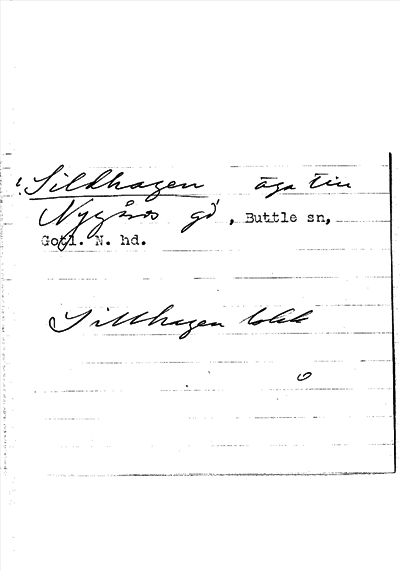 Sildhagen äga till
Nygårds gd, Buttle sn,
Gotl. N. hd.
Sillhagen